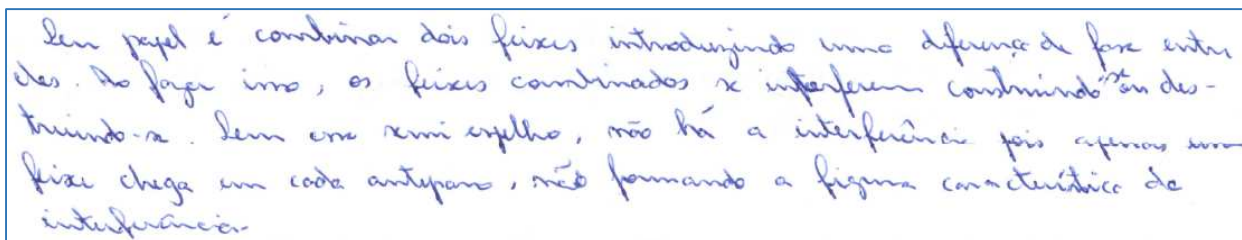 Seu papel é combinar dois feixes introduzindo uma diferença de fase entre
eles. Ao fazer isso, os feixes combinados se interferem construindo-se ou des-
truindo-se. Sem esse semi espelho, não há a interferência pois apenas um
feixe chega em cada anteparo, não formando a figura característica de
interferência.